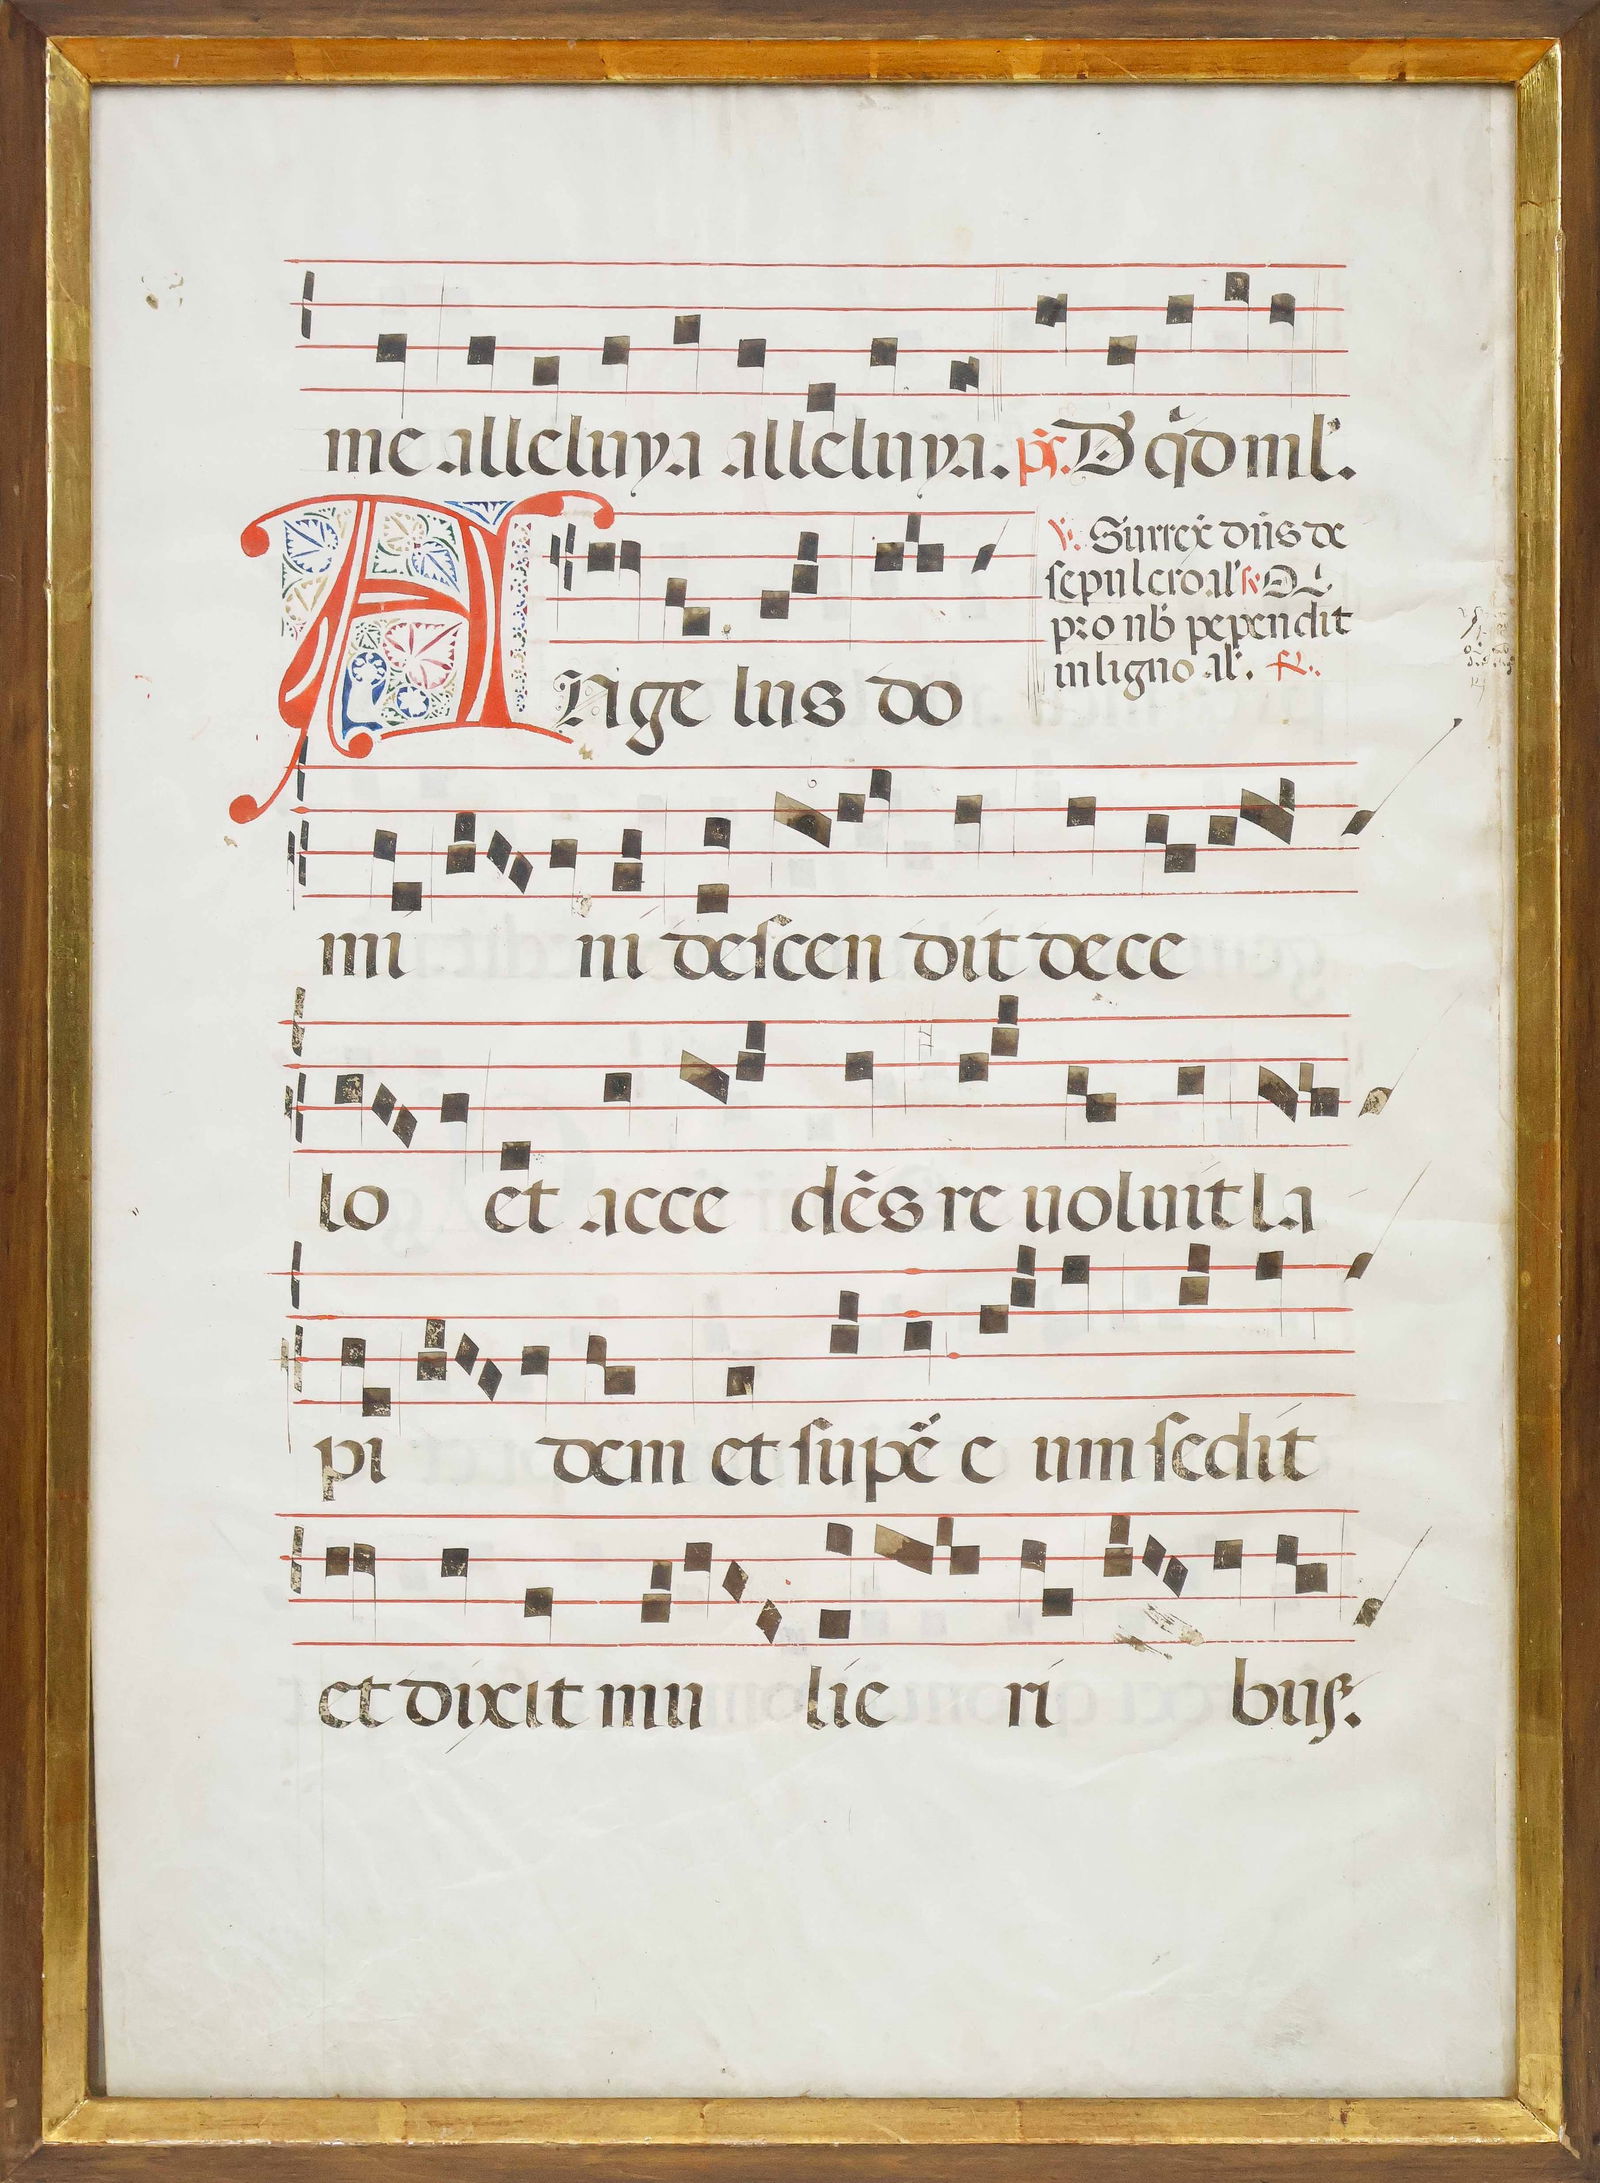 me alleluya alleluya. ps. D̃ q̃dml̃.
Ange lus do
℣. Surrex̃ dñs de
sepulcro al̃
pro nb̃ pependit
in ligno al̃. ℟.
mi ni descen dit de ce
lo et acce dẽs re uoluit la
pi dem et supẽ e um sedit
et dixit mu lie ri bus.